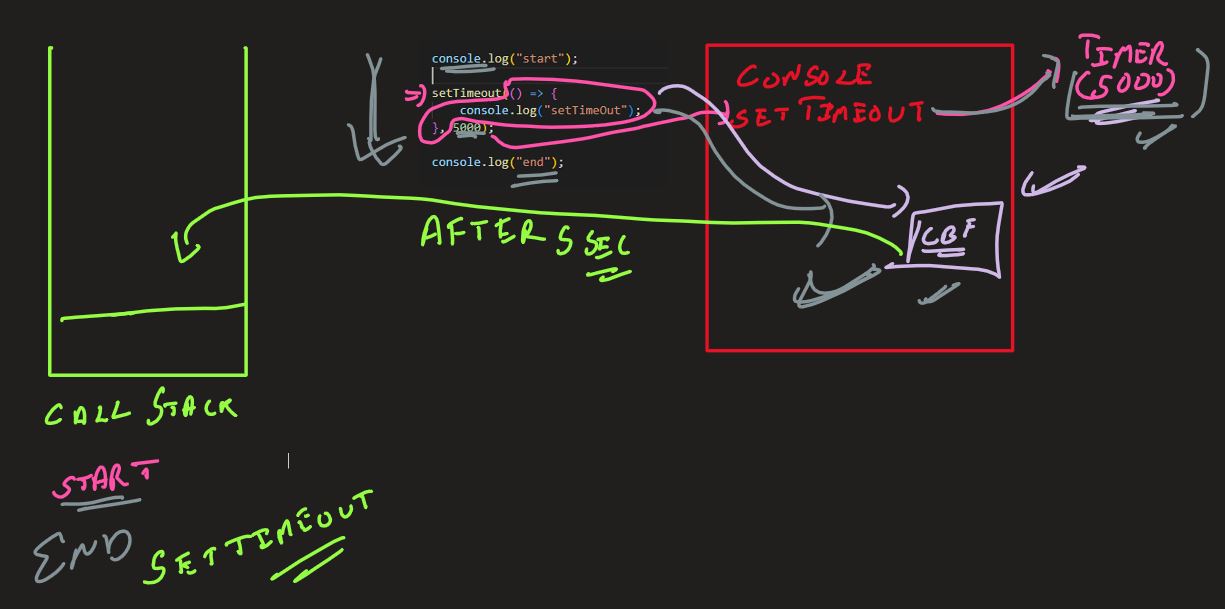 console.log("start");
setTimeout(() => {
console.log("setTimeOut");
}, 5000);
console.log("end");
CONSOLE
SETTIMEOUT
TIMER
(5000)
CBF
AFTER 5 SEC
CALL STACK
START
END
SETTIMEOUT